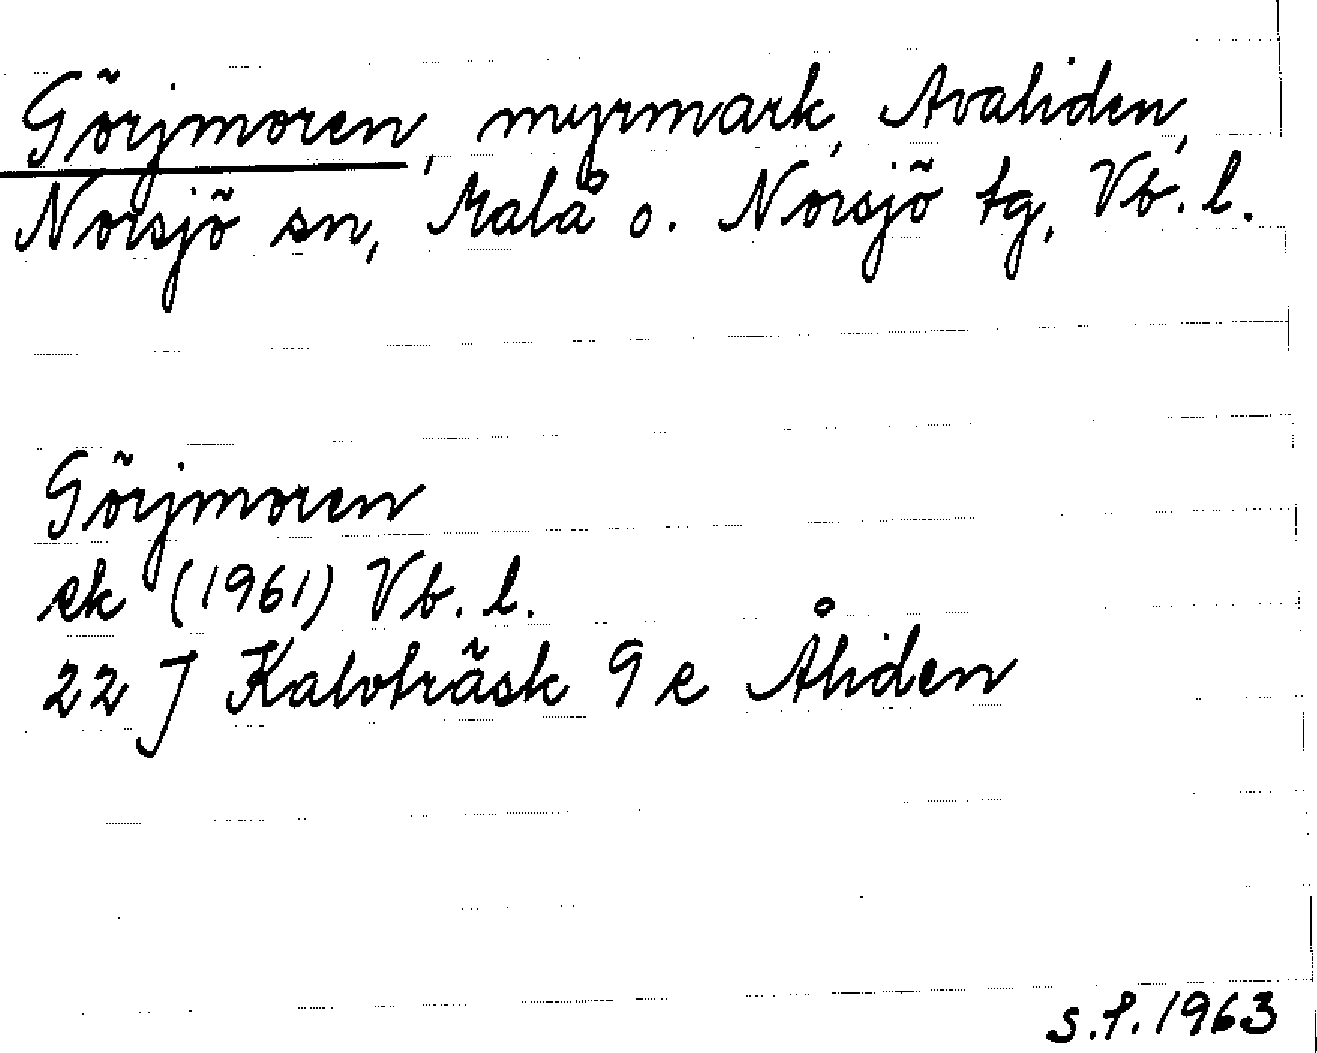 Görjmoren, myrmark, Avaliden,
Norsjö sn, Malå o. Norsjö tg, Vb. l.
Görjmoren
ek (1961) Vb. l.
22 J Kalvträsk 9 e Åliden
S.P. 1963